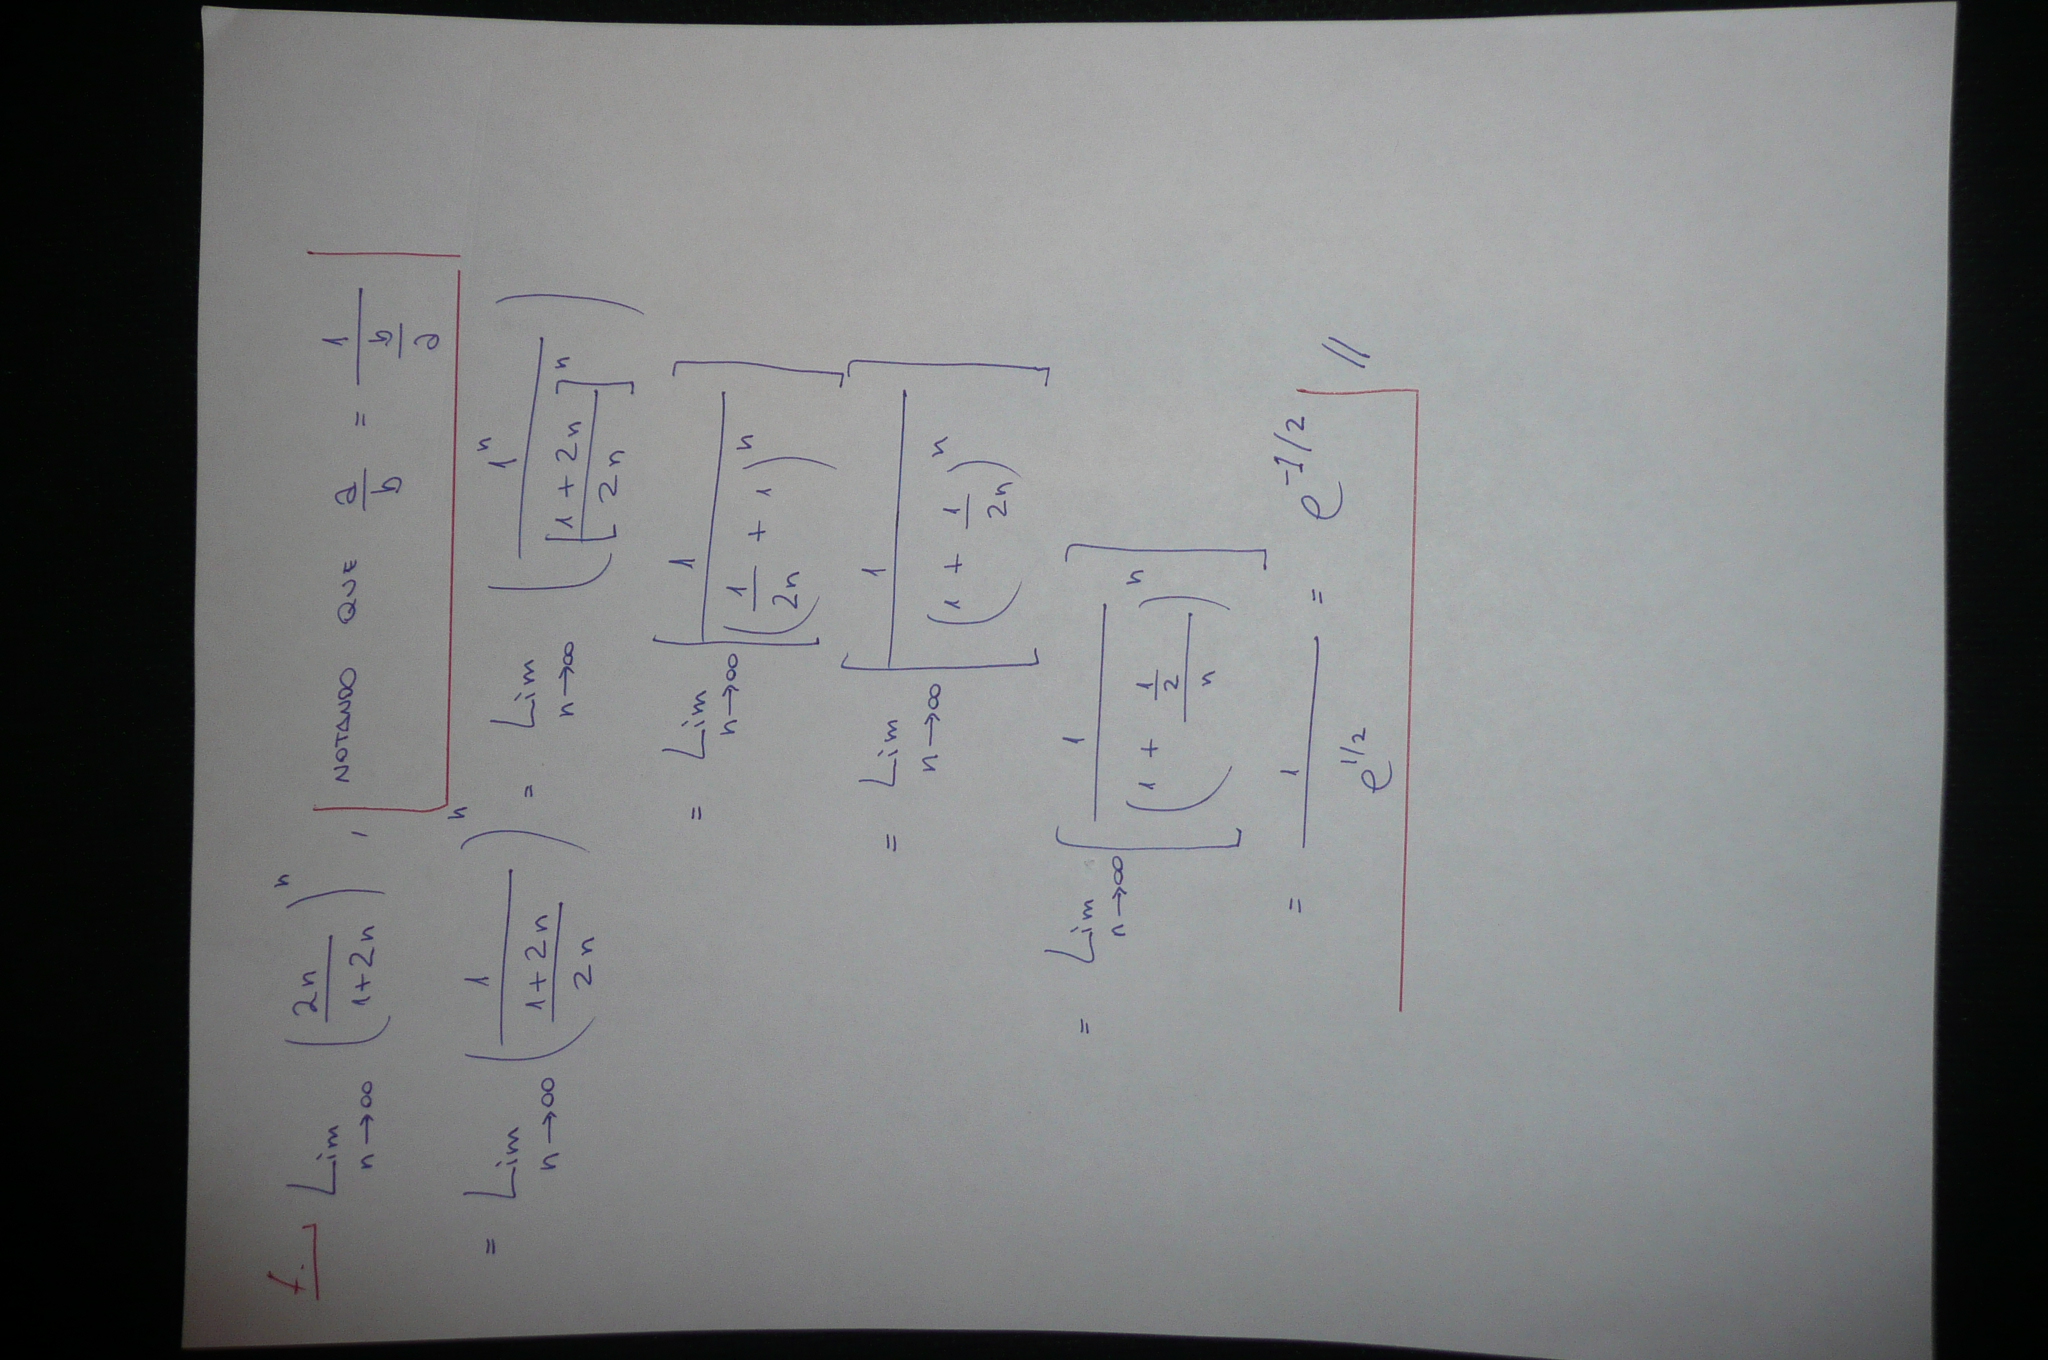 f. Lim n→∞ (2n/(1+2n))^n , NOTANDO QUE a/b = 1/(b/a)
= Lim n→∞ (1/((1+2n)/2n))^n = Lim n→∞ (1^n/[(1+2n)/2n]^n)
= Lim n→∞ [1/(1/2n + 1)^n]
= Lim n→∞ [1/(1 + 1/2n)^n]
= Lim n→∞ [1/(1 + (1/2)/n)^n]
= 1/e^1/2 = e^-1/2 //